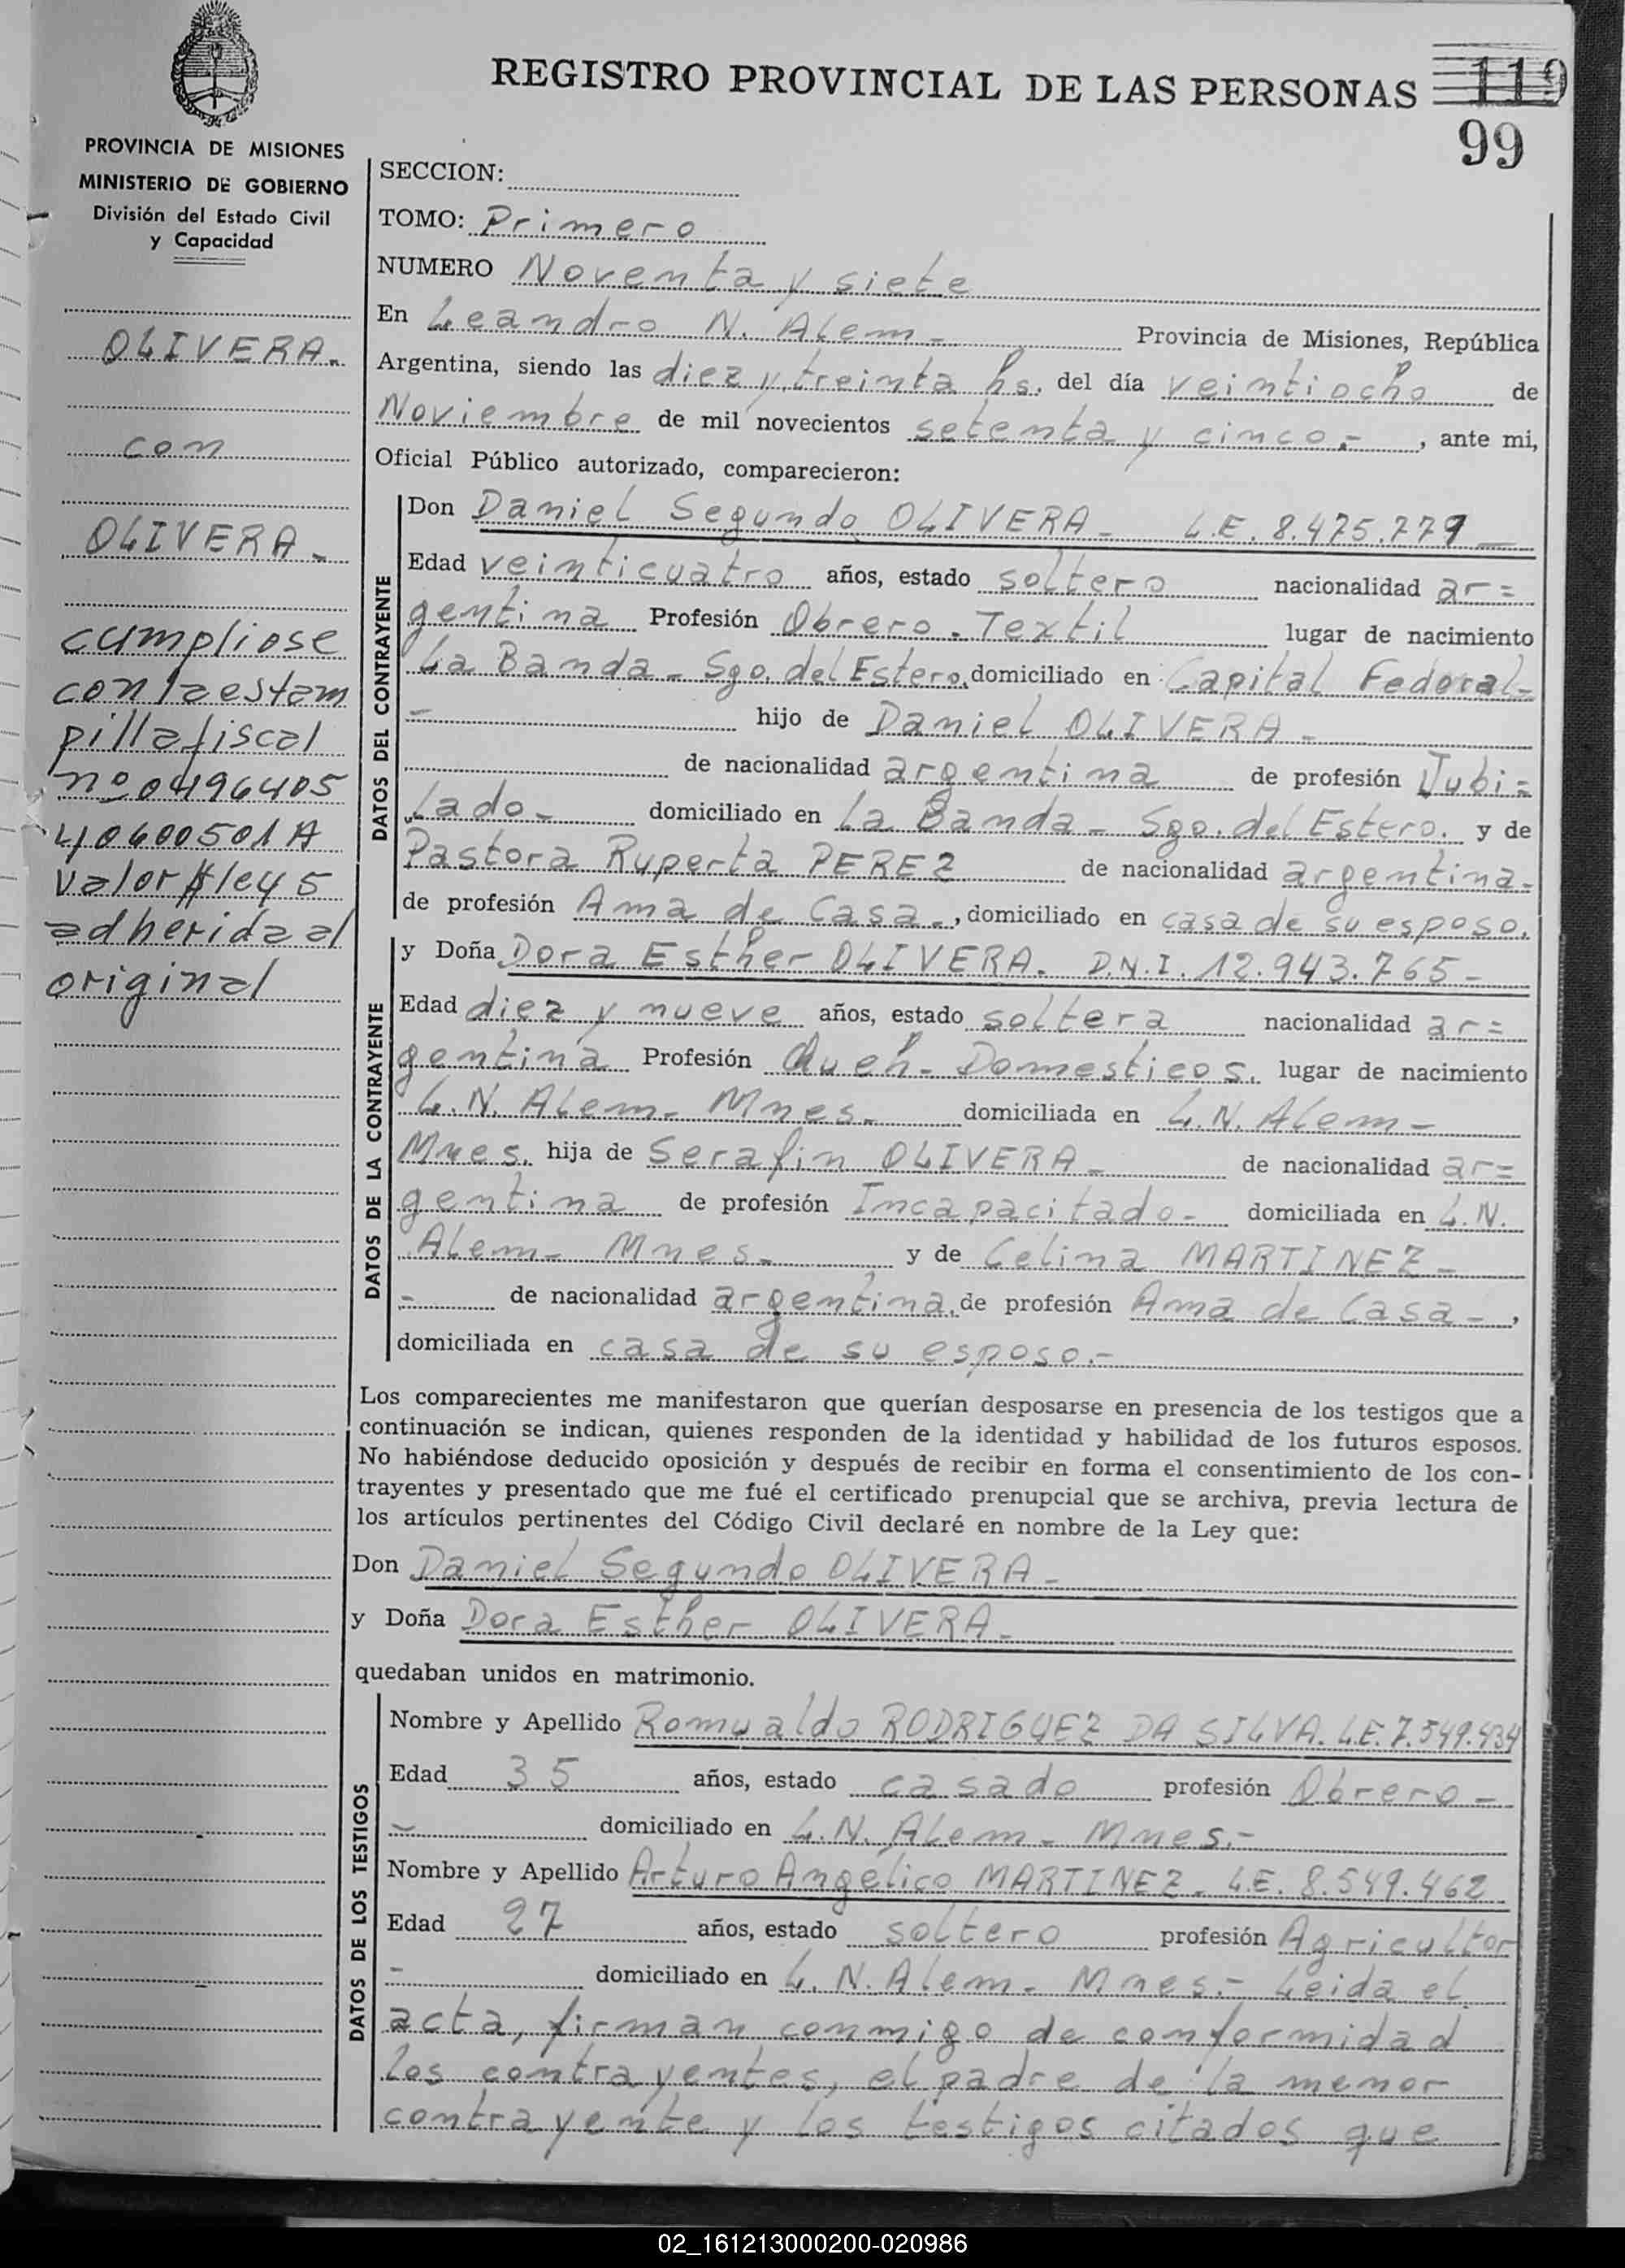 REGISTRO PROVINCIAL DE LAS PERSONAS 119
99
PROVINCIA DE MISIONES
MINISTERIO DE GOBIERNO
División del Estado Civil
y Capacidad
OLIVERA.-
con
OLIVERA -
cumpliose
con la estam
pilla fiscal
nº 0496405
y 0600501A
valor $ ley 5
adherida al
original
SECCION:
TOMO: Primero
NUMERO Noventa y siete
En Leandro N. Alem - Provincia de Misiones, República
Argentina, siendo las diez y treinta hs. del día veintiocho de
Noviembre de mil novecientos setenta y cinco.- , ante mi,
Oficial Público autorizado, comparecieron:
DATOS DEL CONTRAYENTE
Don Daniel Segundo OLIVERA - L.E. 8.475.779 -
Edad veinticuatro años, estado soltero nacionalidad ar=
gentina Profesión Obrero - Textil lugar de nacimiento
La Banda - Sgo. del Estero, domiciliado en Capital Federal-
- hijo de Daniel OLIVERA -
de nacionalidad argentina de profesión Jubi=
lado - domiciliado en La Banda - Sgo. del Estero. y de
Pastora Ruperta PEREZ de nacionalidad argentina-
de profesión Ama de Casa -, domiciliado en casa de su esposo.
DATOS DE LA CONTRAYENTE
y Doña Dora Esther OLIVERA. D.N.I. 12.943.765 -
Edad diez y nueve años, estado soltera nacionalidad ar=
gentina Profesión Queh - Domesticos. lugar de nacimiento
L.N. Alem - Mnes - domiciliada en L.N. Alem -
Mnes. hija de Serafin OLIVERA - de nacionalidad ar=
gentina de profesión Incapacitado - domiciliada en L.N.
Alem - Mnes - y de Celina MARTINEZ -
- de nacionalidad argentina, de profesión Ama de Casa - ,
domiciliada en casa de su esposo.-
Los comparecientes me manifestaron que querían desposarse en presencia de los testigos que a
continuación se indican, quienes responden de la identidad y habilidad de los futuros esposos.
No habiéndose deducido oposición y después de recibir en forma el consentimiento de los con-
trayentes y presentado que me fué el certificado prenupcial que se archiva, previa lectura de
los artículos pertinentes del Código Civil declaré en nombre de la Ley que:
Don Daniel Segundo OLIVERA -
y Doña Dora Esther OLIVERA -
quedaban unidos en matrimonio.
DATOS DE LOS TESTIGOS
Nombre y Apellido Romualdo RODRIGUEZ DA SILVA. L.E. 7.549.434
Edad 35 años, estado casado profesión Obrero -
- domiciliado en L.N. Alem - Mnes.-
Nombre y Apellido Arturo Angélico MARTINEZ - L.E. 8.549.462
Edad 27 años, estado soltero profesión Agricultor
- domiciliado en L.N. Alem - Mnes.- Leida el
acta, firman conmigo de conformidad
los contrayentes, el padre de la menor
contrayente y los testigos citados que
02_161213000200-020986